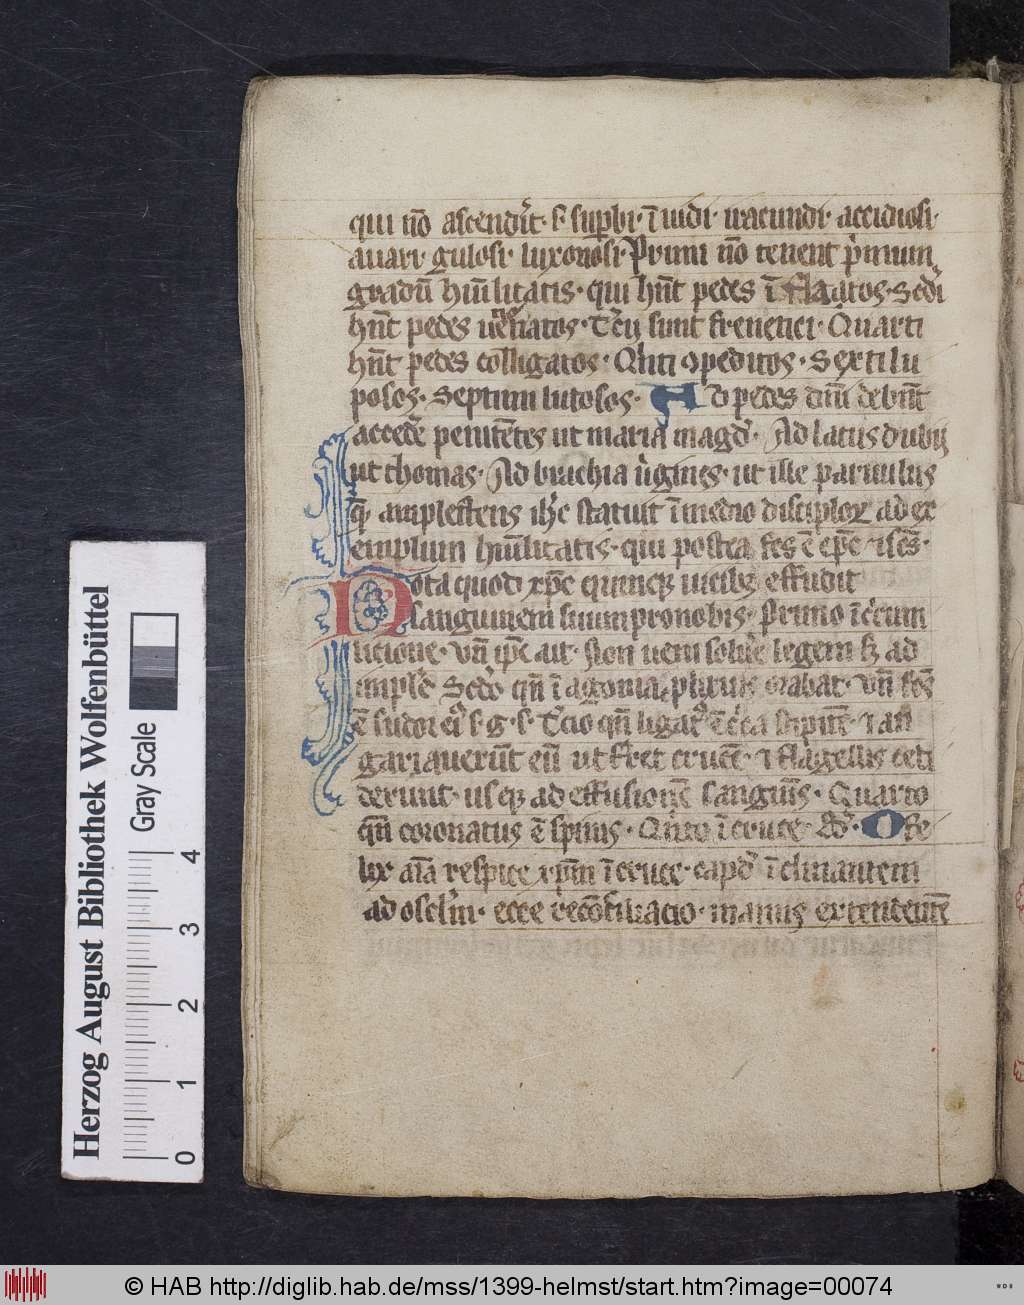 qui nō ascendūt· s· suꝑbi· īuidi· iracundi· accidiosi·
auari· gulosi· luxoriosi· Primi nō tenent pͥmum
gradū hūilitatis· qui hn̄t pedes īflatos· Sedi
hn̄t pedes uͣtos· Tͨcij sunt frenetici· Quarti
hn̄t pedes colligatos· Qͥnti ꝯpeditos· Sexti lu
posos· Septimi lutosos· Ad pedes dn̄i debn̄t
accedeͤ penitētes ut maria magdͣ· Ad latus dubij
ut thomas· Ad brachia uͥgines· ut ille paruulus
quē amplectens ih̄c statuit ī medio discipuloꝝ ad ex
emplum hūilitatis· qui postea fcūs ē ep̄c
Nota quod xp̄c quinqꝫ uicibꝫ effudit
sanguinem suum pro nobis· Primo ī cͥcum
cicione· Vn̄ ip̄e ait· Non ueni soluͤe legem sꝫ ad
impleͤ Sedo qn̄ ī agonia ꝓlixius orabat· Vn̄ fcūs
ē sudor eiꝰ s· g· s· Tͨcio qn̄ ligatꝰ
gariauerūt eū ut ferret crucē· ⁊ flagellis ceci
derunt· usqꝫ ad effusionē sanguinis· Quarto
qn̄ coronatus ē spinis· Quīto ī cruce· O fe
lix aīa respice xpm̄ ī cruce· capud īclinantem
ad osclm̄· ecce reconsiliacio· manus extendentē
Herzog August Bibliothek Wolfenbüttel
Gray Scale
0 1 2 3 4
© HAB http://diglib.hab.de/mss/1399-helmst/start.htm?image=00074